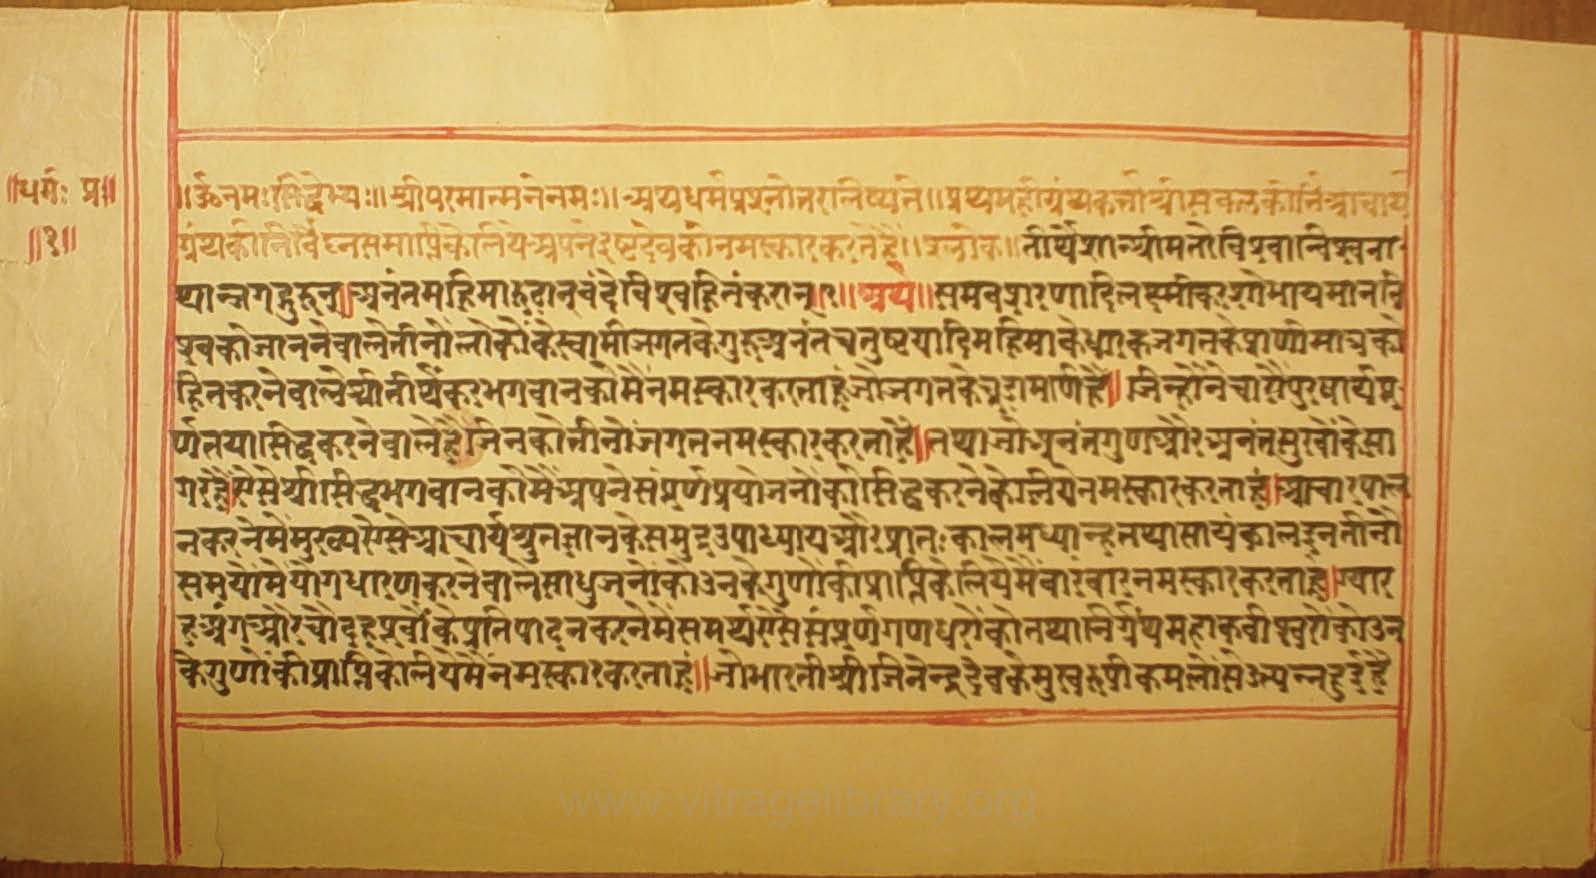 ॥धर्मः प्र॥
॥१॥
॥ॐनमःसिद्धेभ्यः॥श्रीपरमात्मनेनमः॥अथधर्मप्रश्नोत्तरलिख्यते॥प्रथमहीग्रंथकर्त्ताश्रीसकलकीर्त्तिआचार्य
ग्रंथकीनिर्विघ्नसमाप्तिकेलियेअपनेइष्टदेवकोनमस्कारकरतेहैं॥श्लोक॥तीर्थेशान्श्रीमतोविश्वान्विश्वना-
थान्जगद्गुरून्॥अनंतमहिमारूढान्वंदेविश्वहितंकरान्॥१॥अर्थ॥समवशरणादिलक्ष्मीकरशोभायमानवि
श्वकोजाननेवालेतीनोलोकोंकेस्वामीजगतकेगुरूअनंतचतुष्टयादिमहिमाकेधारकजगतकेप्राणीमात्रको
हितकरनेवालेश्रीतीर्थंकरभगवानकोमैंनमस्कारकरताहूंजोजगतकेचूडामणिहैं॥जिन्होंनेचारोंपुरषार्थपू-
र्णतयासिद्धकरनेवालेहैंजिनकोतीनोंजगतनमस्कारकरताहैं॥तथाजोअनंतगुणऔरअनंतसुखोंकेसा
गरहैंऐसेश्रीसिद्धभगवानकोमैंअपनेसंपूर्णप्रयोजनोंकोसिद्धकरनेकेलियेनमस्कारकरताहूं॥आचारपाल
नकरनेमेंमुख्यऐसेआचार्यश्रुतज्ञानकेसमुद्रउपाध्यायऔरप्रातःकालमध्यान्हतथासायंकालइनतीनों
समयोंमेंयोगधारणकरनेवालेसाधुजनोंकोउनकेगुणोंकीप्राप्तिकेलियेमैंबारंबारनमस्कारकरताहूं॥ग्यार
हअंगऔरचौदहपूर्वोंकेप्रतिपादनकरनेमेंसमर्थऐसेसंपूर्णगणधरोंकोतथानिर्ग्रंथमहाकवीश्वरोंकोउन
केगुणोंकीप्राप्तिकेलियेमैंनमस्कारकरताहूं॥जोभारतीश्रीजिनेन्द्रदेवकेमुखरूपीकमलोंसेउत्पन्नहुईहै
www.vitragelibrary.org